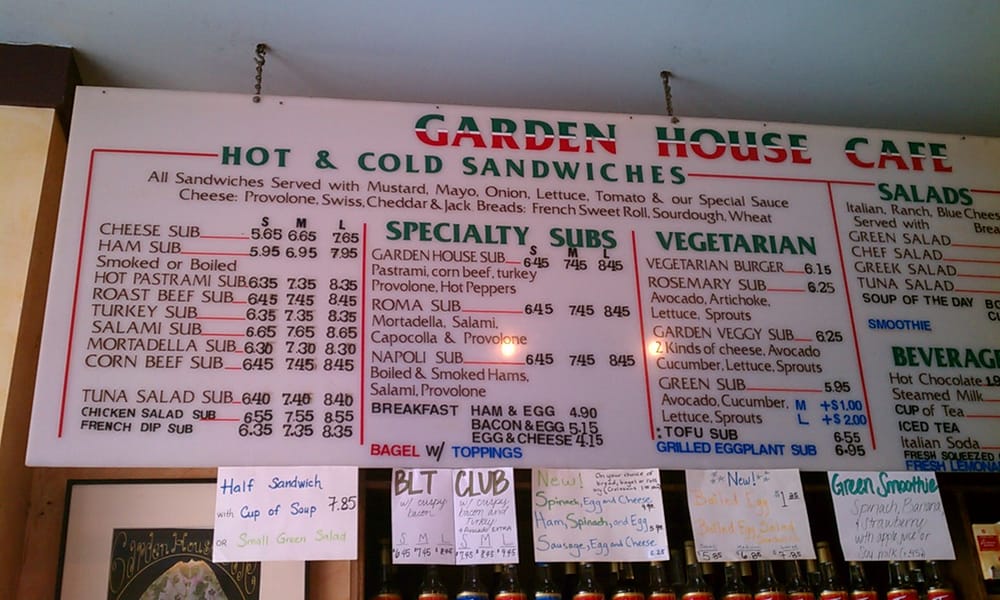 GARDEN HOUSE CAFE
HOT & COLD SANDWICHES
All Sandwiches Served with Mustard, Mayo, Onion, Lettuce, Tomato & our Special Sauce
Cheese: Provolone, Swiss, Cheddar & Jack Breads: French Sweet Roll, Sourdough, Wheat
S M L
CHEESE SUB 5.65 6.65 7.65
HAM SUB 5.95 6.95 7.95
Smoked or Boiled
HOT PASTRAMI SUB 6.35 7.35 8.35
ROAST BEEF SUB 6.45 7.45 8.45
TURKEY SUB 6.35 7.35 8.35
SALAMI SUB 6.65 7.65 8.65
MORTADELLA SUB 6.30 7.30 8.30
CORN BEEF SUB 6.45 7.45 8.45
TUNA SALAD SUB 6.40 7.40 8.40
CHICKEN SALAD SUB 6.55 7.55 8.55
FRENCH DIP SUB 6.35 7.35 8.35
SPECIALTY SUBS
S M L
GARDEN HOUSE SUB 6.45 7.45 8.45
Pastrami, corn beef, turkey
Provolone, Hot Peppers
ROMA SUB 6.45 7.45 8.45
Mortadella, Salami,
Capocolla & Provolone
NAPOLI SUB 6.45 7.45 8.45
Boiled & Smoked Hams,
Salami, Provolone
BREAKFAST HAM & EGG 4.90
BACON & EGG 5.15
EGG & CHEESE 4.15
BAGEL W/ TOPPINGS
VEGETARIAN
VEGETARIAN BURGER 6.15
ROSEMARY SUB 6.25
Avocado, Artichoke,
Lettuce, Sprouts
GARDEN VEGGY SUB 6.25
2 Kinds of cheese, Avocado
Cucumber, Lettuce, Sprouts
GREEN SUB 5.95
Avocado, Cucumber, M +$1.00
Lettuce, Sprouts L +$2.00
TOFU SUB 6.55
GRILLED EGGPLANT SUB 6.95
SALADS
Italian, Ranch, Blue Chees
Served with Brea
GREEN SALAD
CHEF SALAD
GREEK SALAD
TUNA SALAD
SOUP OF THE DAY
SMOOTHIE
BEVERAG
Hot Chocolate
Steamed Milk
CUP of Tea
ICED TEA
Italian Soda
FRESH SQUEEZED
FRESH LEMONA
Half Sandwich
with Cup of Soup 7.85
OR Small Green Salad
BLT
w/ crispy
bacon
S M L
6.45 7.45 8.45
CLUB
w/ crispy
bacon and
Turkey
+ Avocado EXTRA
S M L
7.45 8.45 9.45
New!
On your choice of
bread, bagel or roll
Spinach, Egg and Cheese
Ham, Spinach, and Egg
Sausage, Egg and Cheese
New!
Boiled Egg
Boiled Egg Salad
Sandwich
5.85 6.85 7.85
Green Smoothie
Spinach, Banana,
+ Strawberry
with apple juice or
Soy milk
Garden Hous